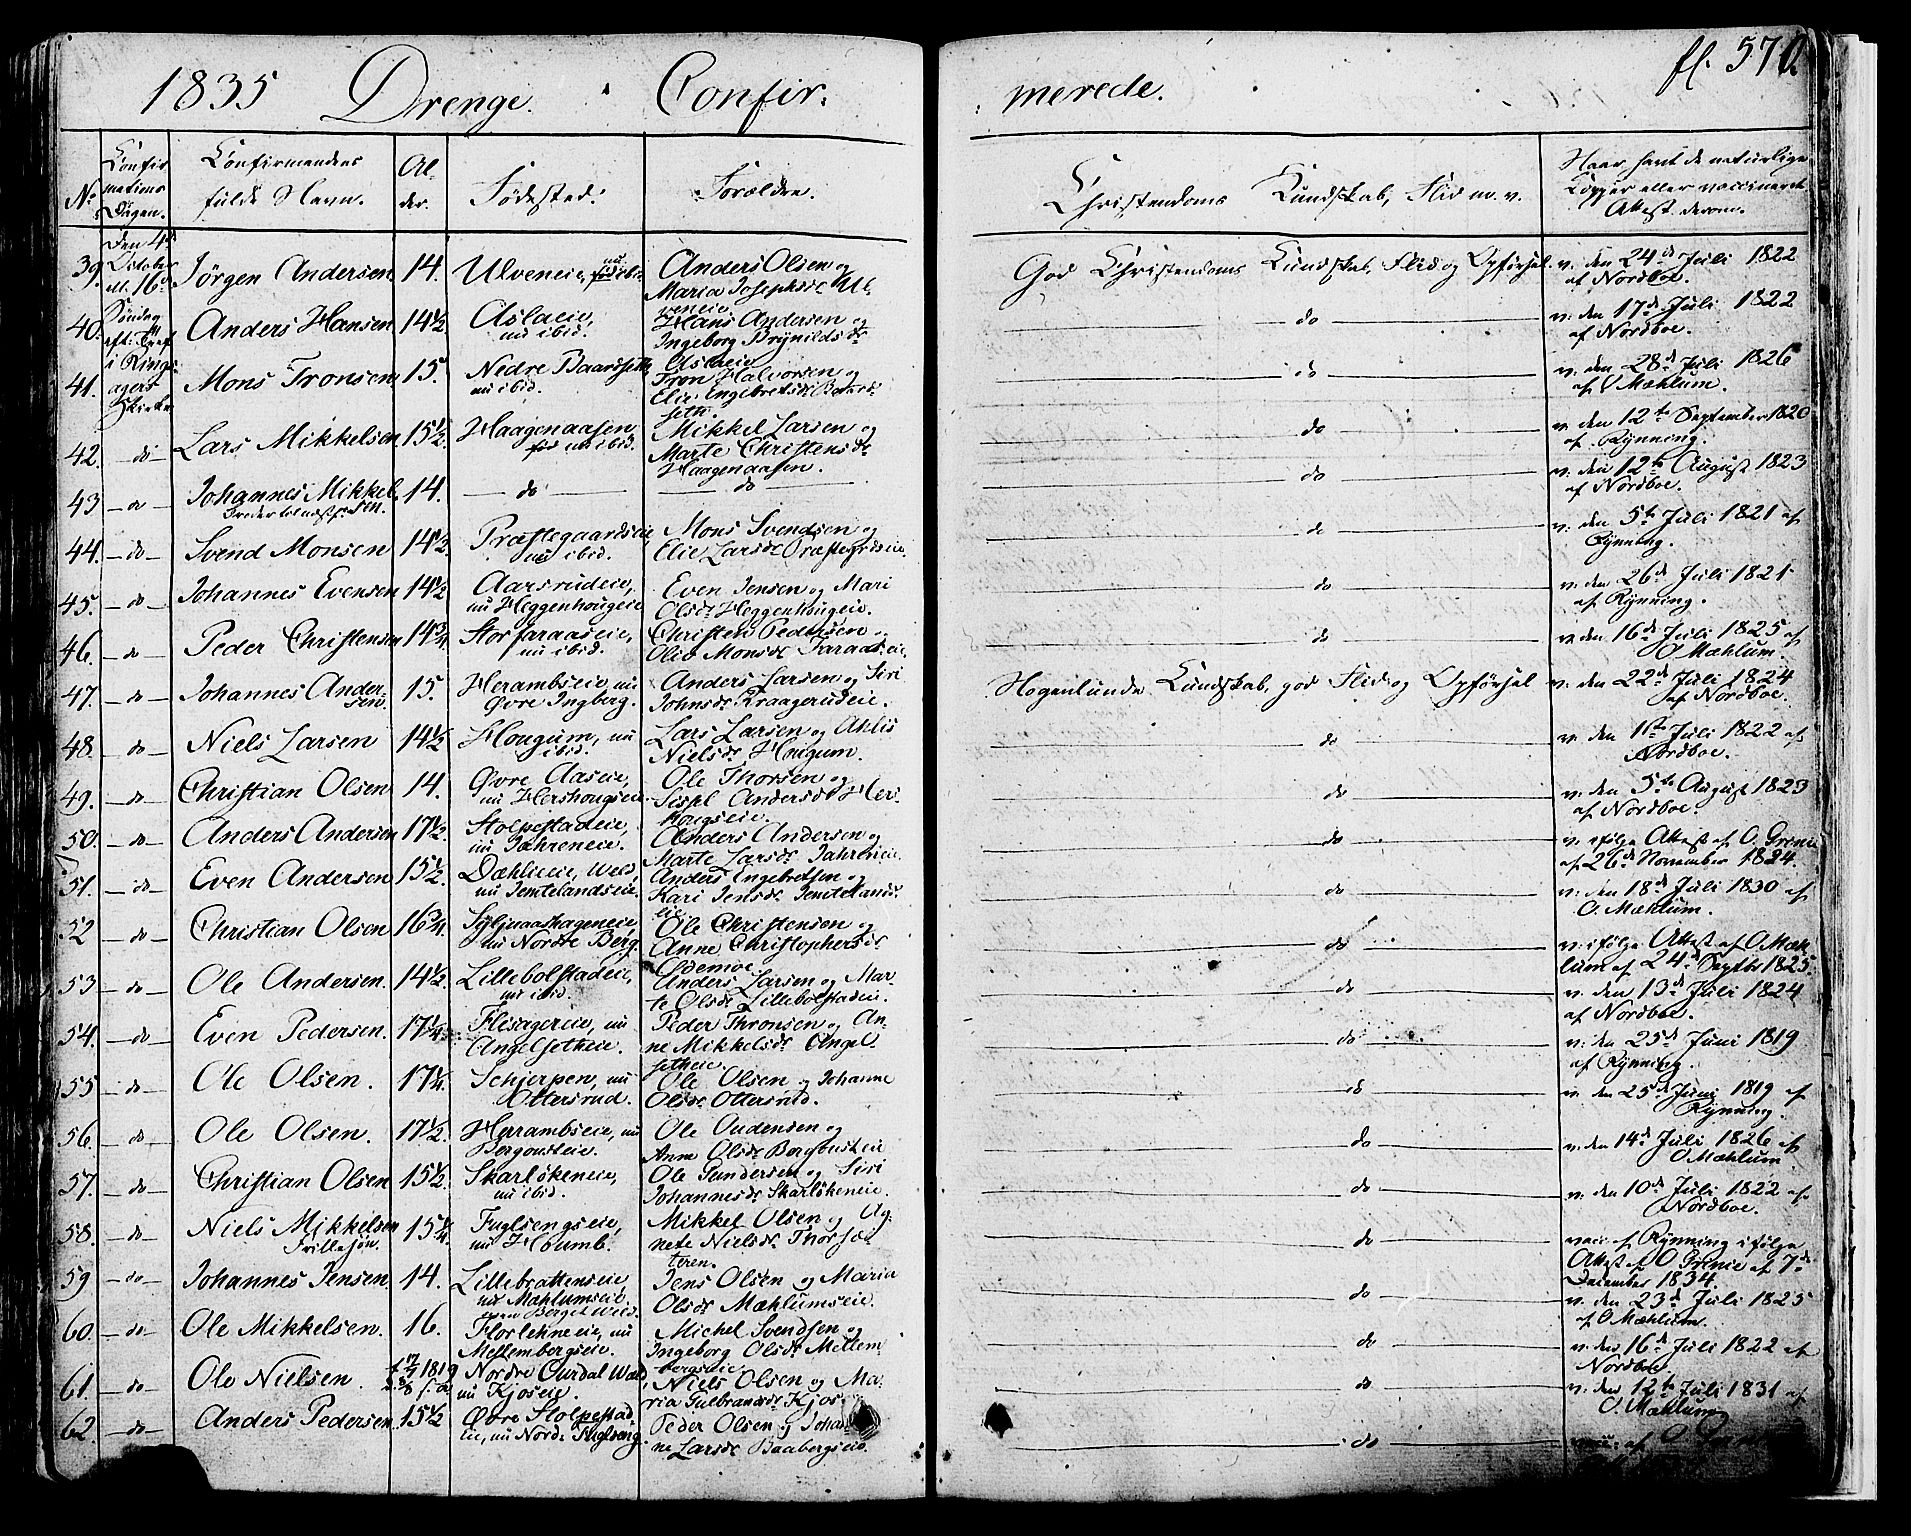 1835 Drenge Confir-
merede.
fl. 570.
No
Confir
mations
Dagen.
Confirmandens
fulde Navn.
Al-
der.
Födested:
Forældre.
Christendoms Kundskab, Flid m. v.
Naar havt de naturlige
Kopper eller vaccineret
Attest derom.
Den 4de
October
Söndag
i Rings-
agers
Kirke
39. Jörgen Andersen 14. Ulveneie, nu ibid. Anders Olsen og
Maria Josephsdr Ul-
veneie
God Christendoms Kundskab, Flid og Opförsel v. den 24de Juli 1822
af Nordboe.
40. Anders Hansen 14½ Aslaeie,
nu ibid.
Hans Andersen og
Ingeborg Brynildsdr
Aslaeie
do v. den 17de Juli 1822
af Nordboe.
41. Mons Tronsen 15. Nedre Baardseth
nu ibid.
Tron Halvorsen og
Elie Ingebretsdr Baard-
seth.
do v. den 28de Juli 1826
af Mæhlum.
42. do Lars Mikkelsen 15½ Haagenaasen
nu ibid.
Mikkel Larsen og
Marte Christensdr
Haagenaasen.
do v. den 12te September 1820
af Rynning.
43 do Johannes Mikkel-
sen.
14. do do
do v. den 12te August 1823
af Nordboe.
44. do Svend Monsen 14½ Præstegaardseie
nu ibid.
Mons Svendsen og
Elie Larsdr Præstegrdseie
do v. den 5te Juli 1821 af
Rynning.
45. do Johannes Evensen 14½ Aarsrudeie,
nu Heggenhougeie
Even Jensen og Mari
Olsdr Heggenhougeie.
do v. den 26de Juli 1821
af Rynning.
46. do Peder Christensen 14¾ Storfaraaseie,
nu ibid.
Christen Pedersen og
Olia Monsdr Faraaseie.
do v. den 16de Juli 1825 af
O Mæhlum.
47. do Johannes Ander-
sen.
15. Herambseie nu
Övre Ingberg.
Anders Larsen og Siri
Johnsdr Kraagerudeie.
Nogenlunde Kundskab, god Flid og Opförsel v. den 22de Juli 1824
af Nordboe.
48. do Niels Larsen 14½ Hougum, nu
ibid.
Lars Larsen og Ahlis
Nielsdr Hougum.
do v. den 1ste Juli 1822 af
Nordboe.
49. do Christian Olsen 14. Övre Aaseie,
nu Hershougseie.
Ole Thorsen og
Sispl Andersdr Hers-
hougseie.
do v. den 5te August 1823
af Nordboe.
50. do Anders Andersen 17½ Stolpestadeie,
nu Jahreneie.
Anders Andersen og
Marte Larsdr Jahreneie.
do v. ifölge Attest af O. Grenie
af 26de November 1824.
51. do Even Andersen 15½ Dæhlieie, Wold,
nu Jemtelandseie,
Anders Engebretsen og
Kari Jensdr Jemtelands-
eie
do v. den 18de Juli 1830 af
O. Mæhlum.
52 do Christian Olsen 16¾ Syljuaashageneie
nu Nordre Berg.
Ole Christensen og
Anne Christophersdr
Odemoe
do v. ifölge Attest af O Mæh-
lum af 24de Septbr 1825.
53 do Ole Andersen. 14½ Lillebolstadeie,
nu ibid.
Anders Larsen og Mar-
te Olsdr Lillebolstadeie.
do v. den 13de Juli 1824
af Nordboe.
54. do Even Pedersen. 17¼ Flisagereie, nu
Angelsetheie.
Peder Thronsen og An-
ne Mikkelsdr Angel-
setheie.
do v. den 25de Juni 1819
af Rynning.
55 do Ole Olsen. 17¼ Schjerpen, nu
Ottersrud.
Ole Olsen og Johanne
Olsdr Ottersrud.
do v. den 25de Juni 1819 af
Rynning.
56. do Ole Olsen. 17½ Herrambseie, nu
Bergonsteie.
Ole Oudensen og
Anne Olsdr Bergonsteie
do v. den 14de Juli 1826 af
O Mæhlum.
57. do Christian Olsen 15½ Skarlökeneie,
nu ibid.
Ole Gundersen og Siri
Johannesdr Skarlökeneie.
do v. den 10de Juli 1822 af
Nordboe.
58. do Niels Mikkelsen
Frillesön.
15¼ Fuglsengseie,
nu Houmb.
Mikkel Olsen og Ag-
nete Nielsdr Thorsæ-
teren.
do vacc af Rynning ifölge
Attest af O Grenie af 7de
December 1834.
59 do Johannes Jensen 14. Lillebrattenseie
nu Mæhlumseie.
Jens Olsen og Maria
Olsdr Mæhlumseie.
do v. den 23de Juli 1825
af O Mæhlum.
60. do Ole Mikkelsen. 16. Florlehneie, nu
Mellembergseie.
Michel Svendsen og
Ingeborg Olsdr Mellem-
bergseie
do v. den 16de Juli 1822 af
Nordboe
61. do Ole Nielsen. 1819 Nordre Ourdal Wald
nu Kjoseie.
Niels Olsen og Ma-
ria Gulbransdr Kjos
do v. den 12te Juli 1831 af
O. Mæhlum
62. do Anders Pedersen 15½ Övre Stolpestad-
eie, nu Nordr Fuglseng.
Peder Olsen og Johan-
ne Larsdr Baabergseie.
do vacc: af O